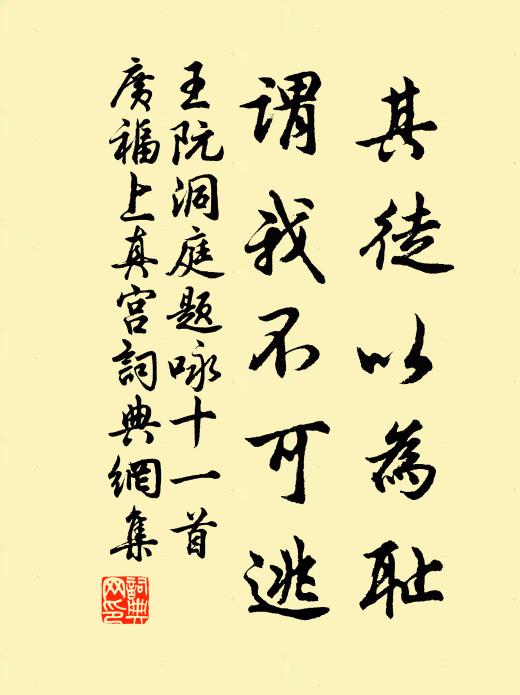 其徒以為耻
謂我不可逃
王阮洞庭題咏十一首
廣福上真宮詞典網集
詞典網印